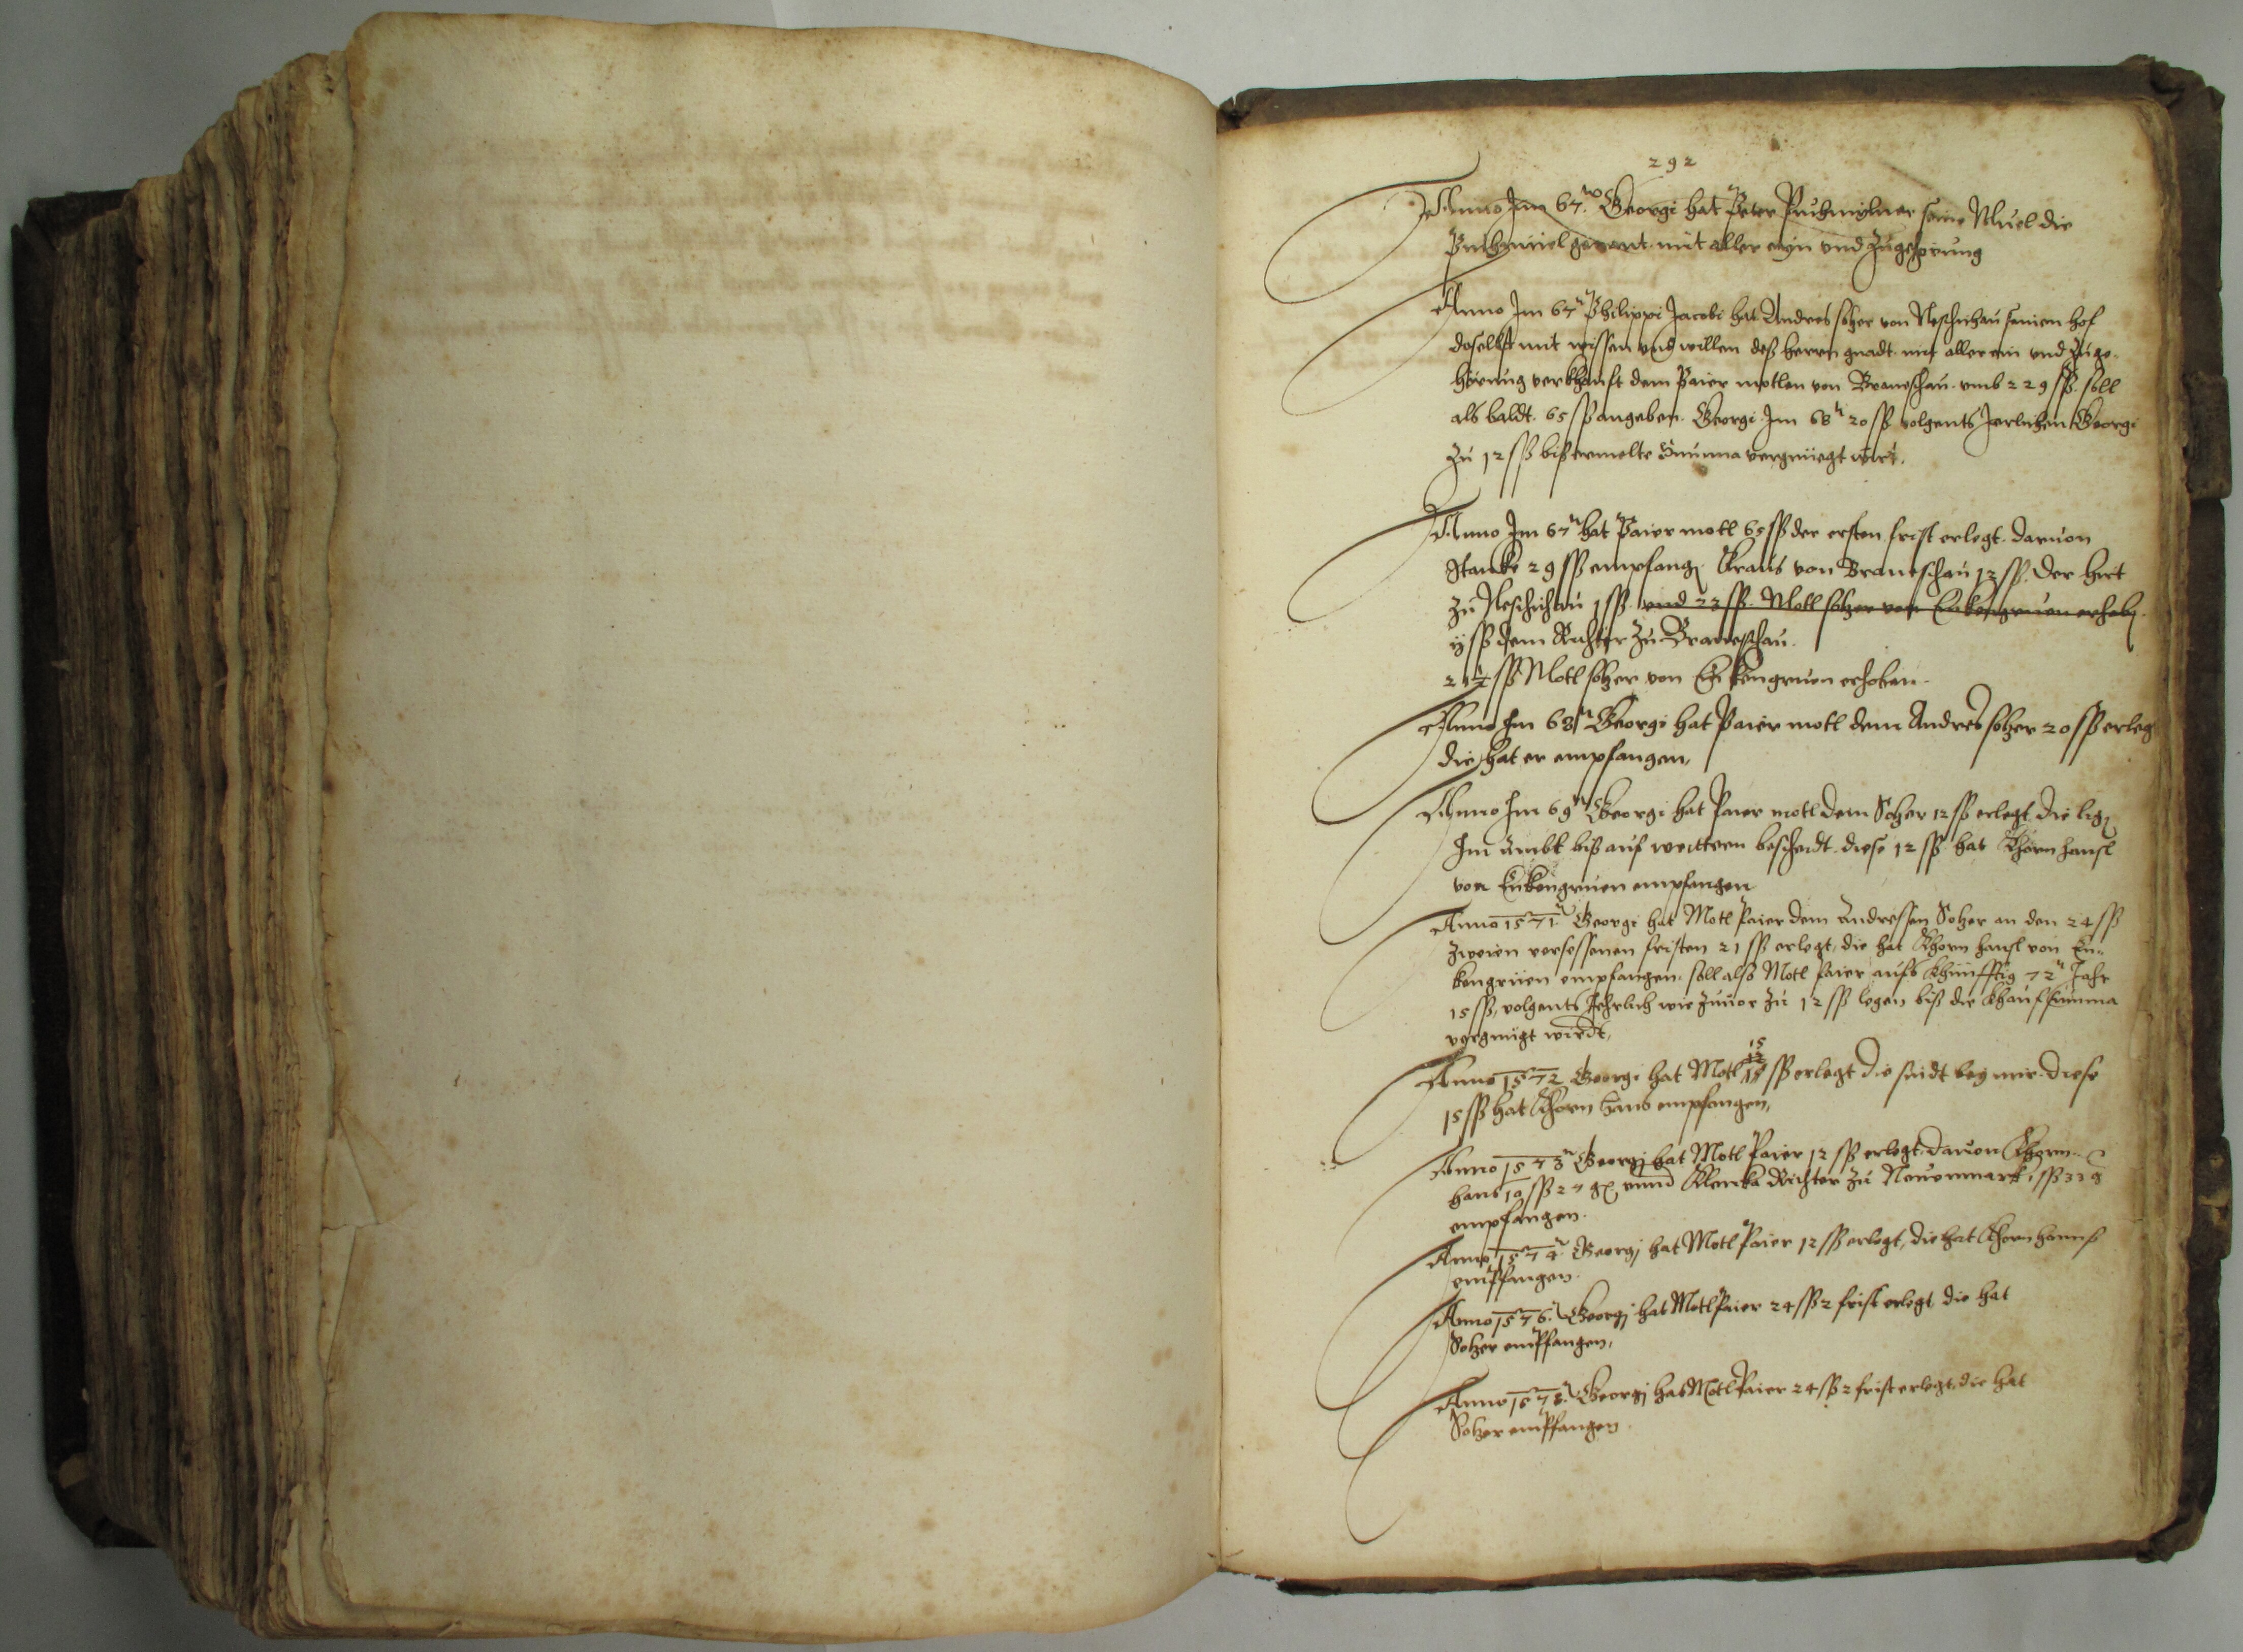 292
Anno Im 67. Georgi hat Peter seine Muel die
genant mit aller ein und Zugehorung
Anno Im 67 Philippi Jacobi hat Andres soher von Neschichau seinem hof
doselbst mit wissen und willen deß herrn gnadt mit aller ein und Zuge-
hörung verkhauft dem Paier motlen von Braneschau umb 229 ß soll
als baldt 65 ß angeben. Georgi Im 68 20 ß volgents Jerlichen Georgi
Zu 12 ß biß ermelte Summa vergnüegt wirt.
Anno Im 67 hat Paier motl 65 ß der ersten frist erlegt. daruon
29 ß empfang Kraus von Braneschau 12 ß. Der hirt
Zu Neschichau 1 ß und 23 ß. Motl soher von Enkengruen erhob
ij ß dem Richter Zu Braneschau.
21½ ß Motl soher von Enkengruen erhoben.
Anno Im 68 Georgi hat Paier motl dem Andres soher 20 ß erleg
die hat er empfangen,
Anno Im 69 Georgi hat Paier motl dem Soher 12 ß erlegt die lig
Im Ambt biß auf weittern bescheidt. diese 12 ß hat Khorn hansl
von Enkengruen empfangen
Anno 1571. Georgi hat Motl Paier dem Andressen Soher an den 24 ß
Zweien versessenen fristen 21 ß erlegt, die hat Khorn hansl von En-
kengrüen empfangen. soll also Motl Paier aufs Khünfftig 72 Jahr
15 ß, volgents Jehrlich wie Zuuor Zu 12 ß legen biß die Khaufsumma
vergnügt wirdt,
Anno 1572 Georgi hat Motl 15 ß erlegt die sindt bey mir. diese
15 ß hat Khorn hans empfangen,
Anno 1573 Georgj hat Motl Paier 12 ß erlegt, dauon Khorn
hans 10 ß 27 g unnd Klenka Richter Zu Neuenmarkt 1 ß 33 g
empfangen.
Anno 1574. Georgj hat Motl Paier 12 ß erlegt, die hat Khorn hannß
empfangen.
Anno 1576. Georgj hat Motl Paier 24 ß 2 frist erlegt die hat
Soher empfangen,
Anno 1578. Georgj hat Motl Paier 24 ß 2 frist erlegt, die hat
Soher empfangen